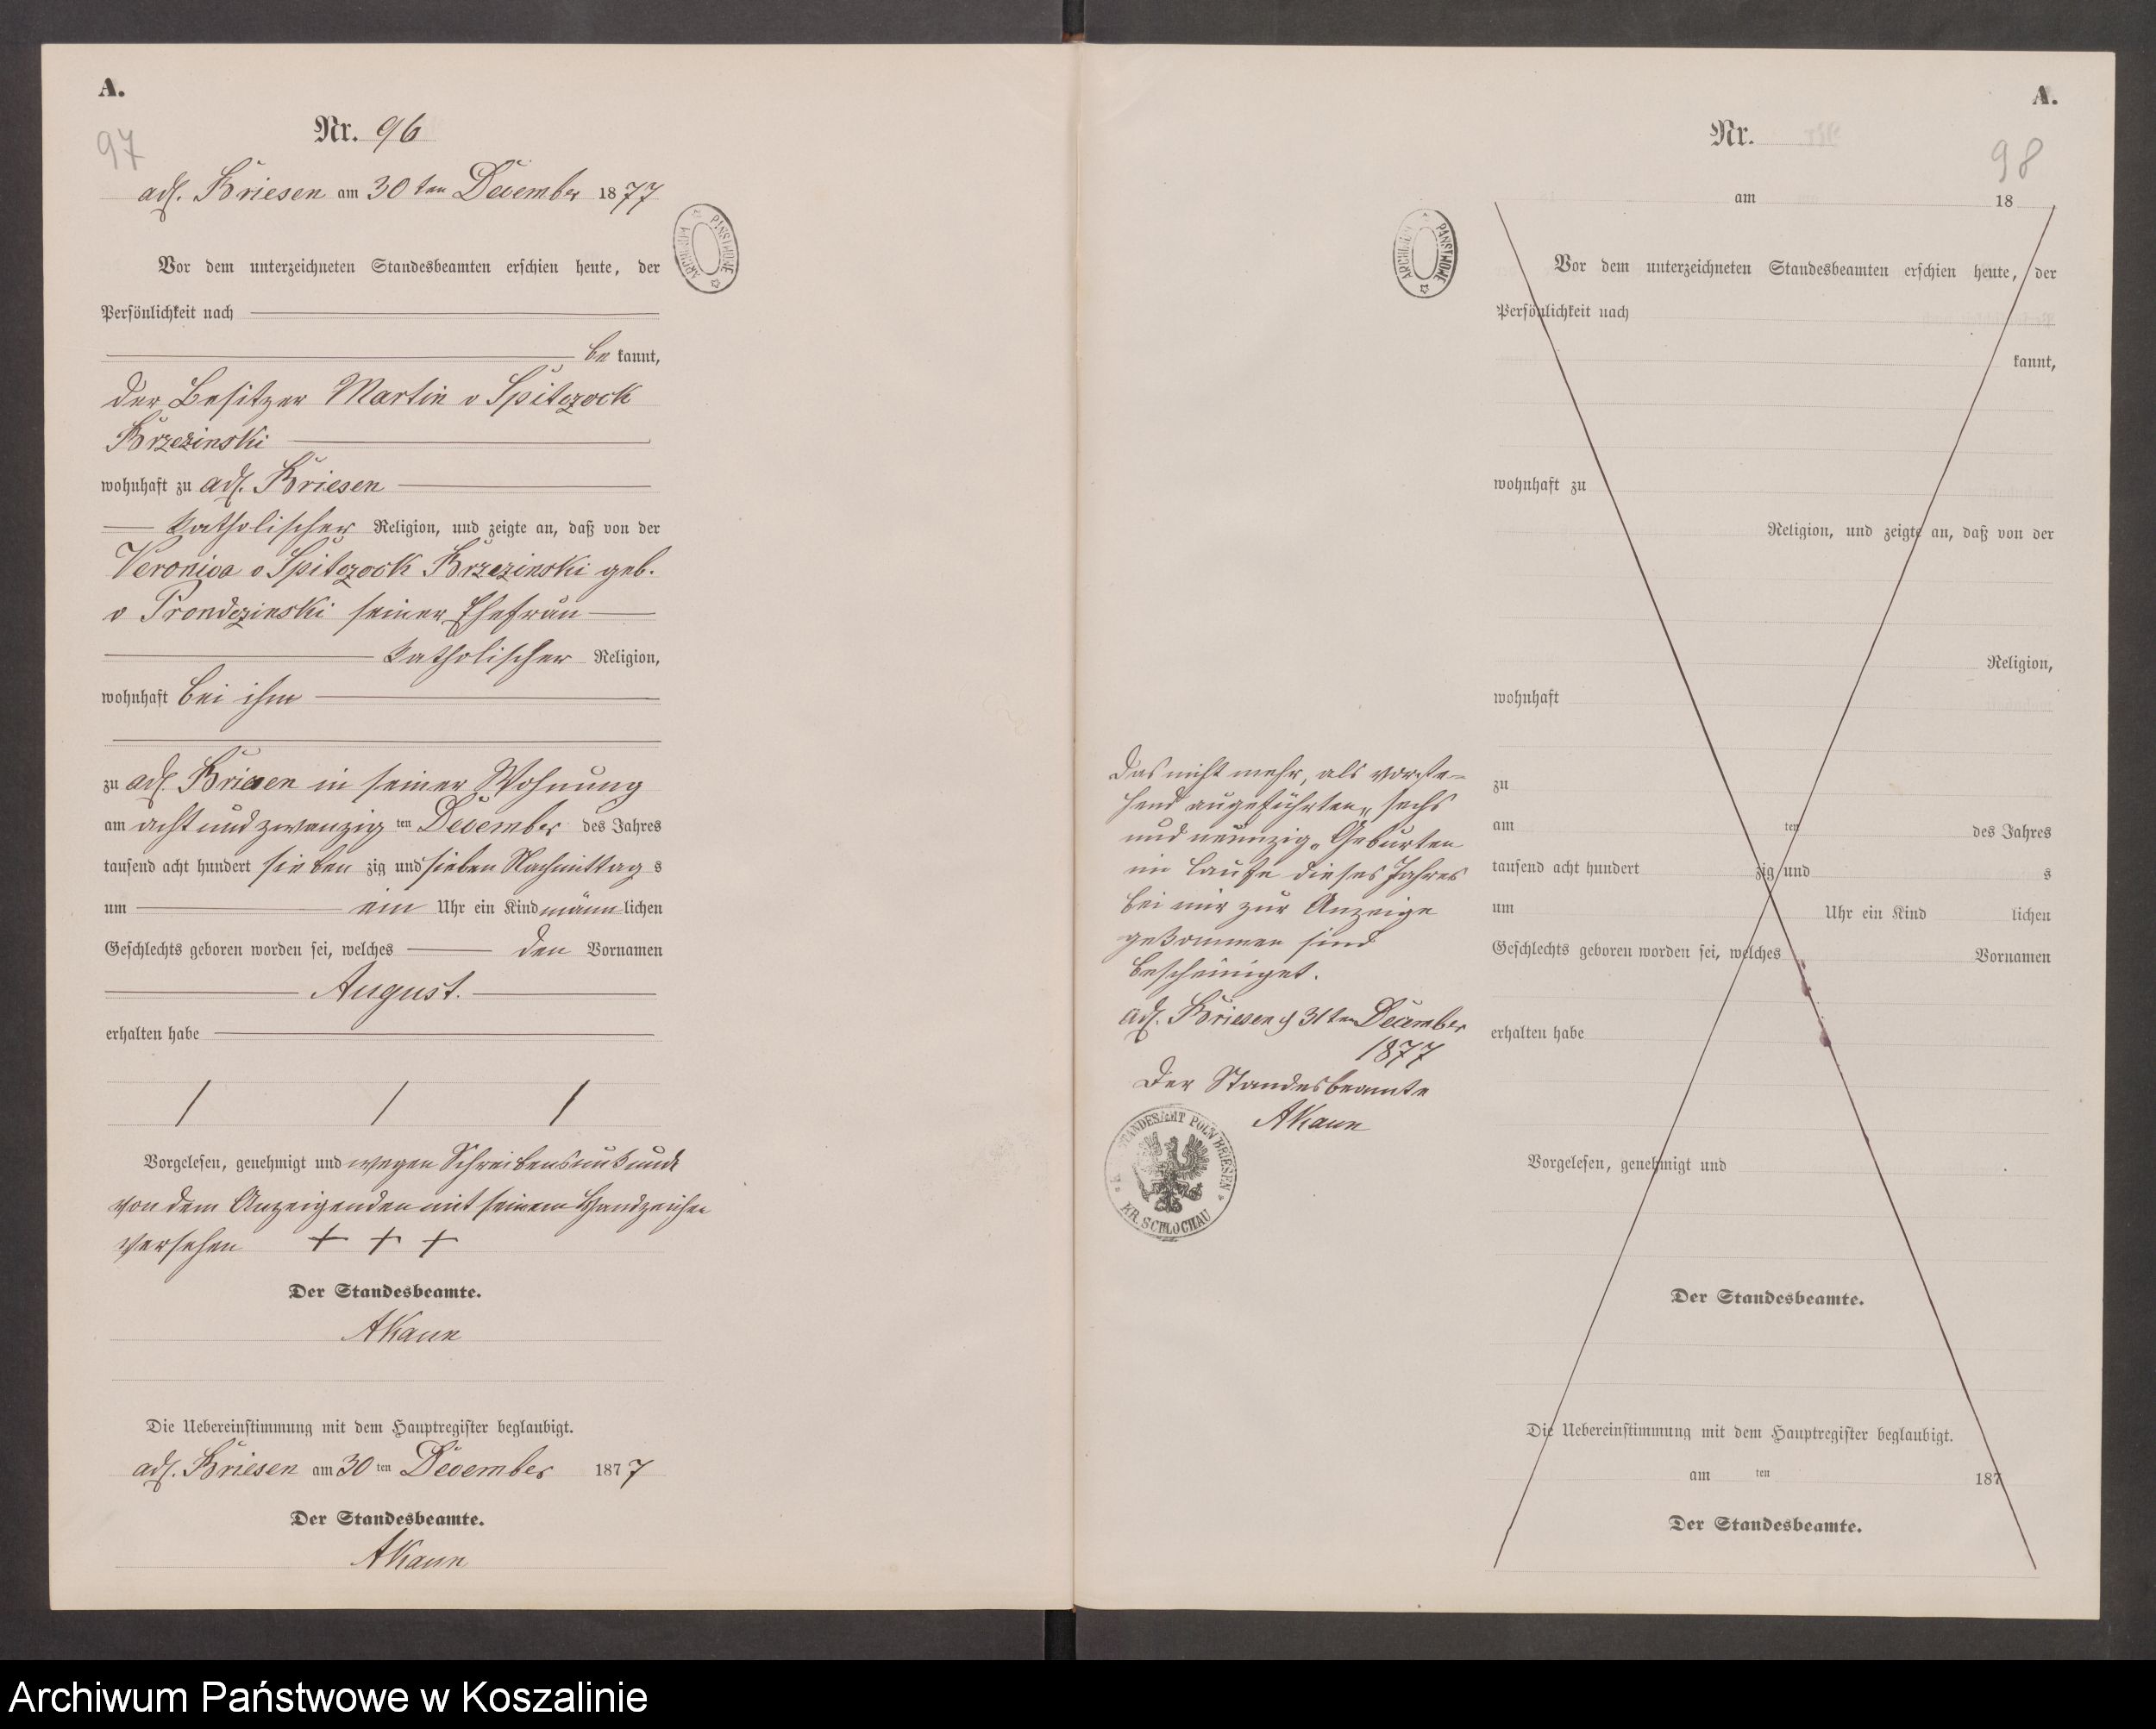 A.
97
Nr. 96
adl. Briesen am 30ten December 1877
Vor dem unterzeichneten Standesbeamten erschien heute, der
Persönlichkeit nach
be kannt,
der Besitzer Martin v Spiczock
Brzezinski
wohnhaft zu adl. Briesen
katholischer Religion, und zeigte an, daß von der
Veronica v Spiczock Brzezinski geb.
v Prondzinski seiner Ehefrau
katholischer Religion,
wohnhaft bei ihm
zu adl. Briesen in seiner Wohnung
am acht und zwanzig ten December des Jahres
tausend acht hundert sieben zig und sieben Nachmittag s
um ein Uhr ein Kind männ lichen
Geschlechts geboren worden sei, welches den Vornamen
August.
erhalten habe
Vorgelesen, genehmigt und wegen Schreibensunkunde
von dem Anzeigenden mit seinem Handzeichen
versehen + + +
Der Standesbeamte.
AKaun
Die Uebereinstimmung mit dem Hauptregister beglaubigt.
adl. Briesen am 30 ten December 1877
Der Standesbeamte.
AKaun
ARCHIWUM PAŃSTWOWE
Das nicht mehr, als vorste-
hend angeführten „sechs
und neunzig„ Geburten
im Laufe dieses Jahres
bei mir zur Anzeige
gekommen sind
bescheiniget.
adl. Briesen d 31ten December
1877
Der Standesbeamte
AKaun
STANDESAMT POLN BRIESEN
KR. SCHLOCHAU
ARCHIWUM PAŃSTWOWE
A.
Nr.
98
am 18
Vor dem unterzeichneten Standesbeamten erschien heute, der
Persönlichkeit nach
kannt,
wohnhaft zu
Religion, und zeigte an, daß von der
Religion,
wohnhaft
zu
am ten des Jahres
tausend acht hundert zig und s
um Uhr ein Kind lichen
Geschlechts geboren worden sei, welches Vornamen
erhalten habe
Vorgelesen, genehmigt und
Der Standesbeamte.
Die Uebereinstimmung mit dem Hauptregister beglaubigt.
am ten 187
Der Standesbeamte.
Archiwum Państwowe w Koszalinie